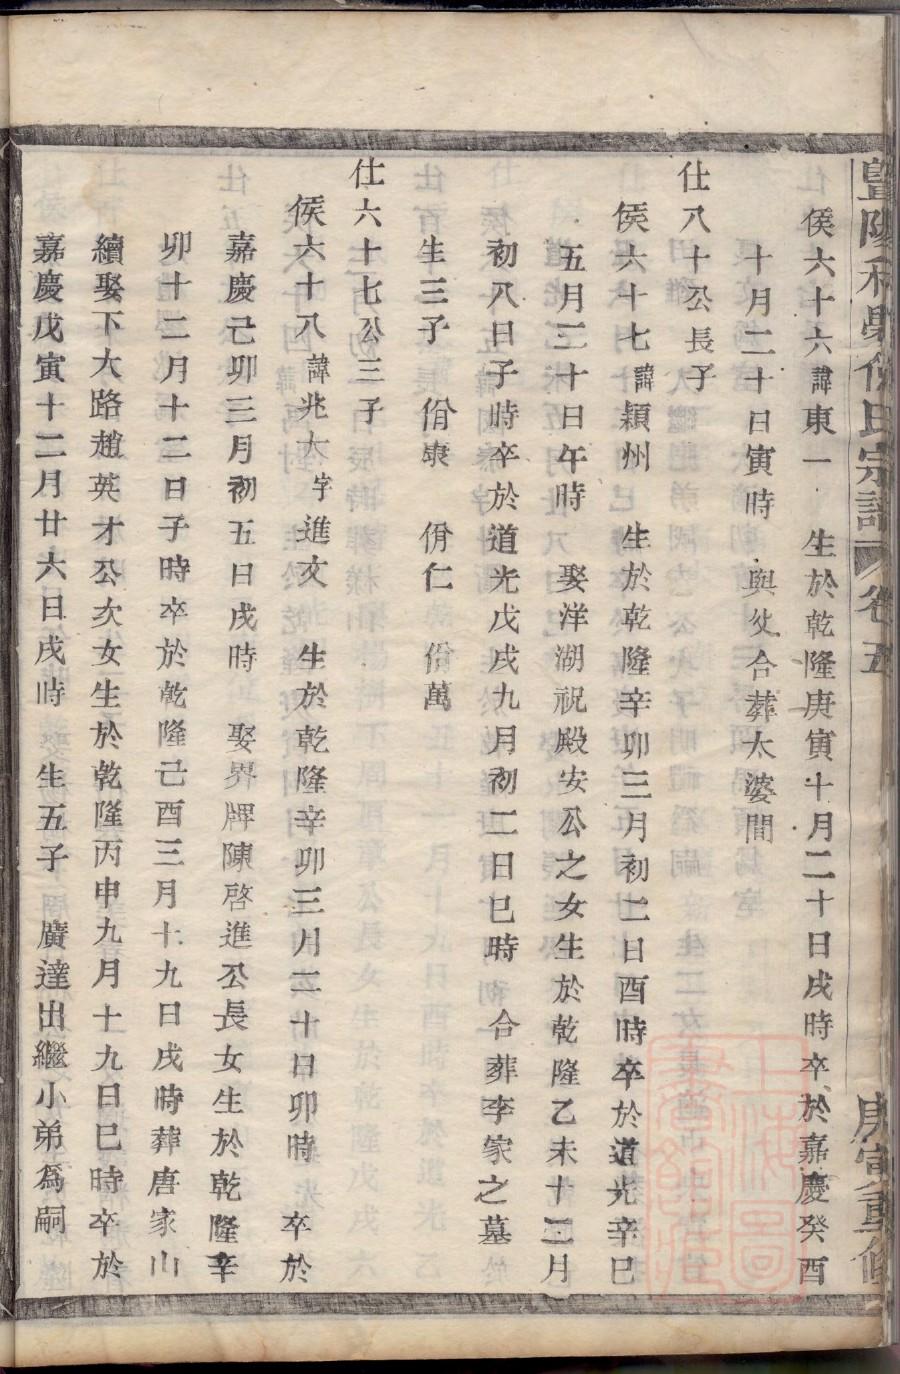 侯氏宗譜 卷五 庚寅重修
侯六十六諱東一 生於乾隆庚寅十月二十日戌時卒於嘉慶癸酉
十月二十日寅時 與父合葬太婆間
仕八十公長子
侯六十七諱穎州 生於乾隆辛卯三月初二日酉時卒於道光辛巳
五月三十日午時 娶洋湖祝殿安公之女生於乾隆乙未十二月
初八日子時卒於道光戊戌九月初二日巳時 合葬李家之墓
生三子 佾康 佾仁 佾萬
仕六十七公三子
侯六十八諱兆大字進文 生於乾隆辛卯三月二十日卯時 卒於
嘉慶己卯三月初五日戌時 娶界牌陳啓進公長女生於乾隆辛
卯十二月十二日子時卒於乾隆己酉三月十九日戌時葬唐家山
續娶下大路趙英才公次女生於乾隆丙申九月十九日巳時卒於
嘉慶戊寅十二月廿六日戌時 生五子 廣達出繼小弟爲嗣